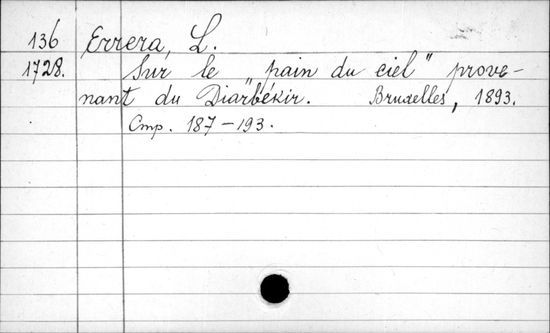 136 Errera, L.
1728. Sur le „pain du ciel" prove-
nant du Diarbékir. Bruxelles, 1893.
Стр. 187-193.